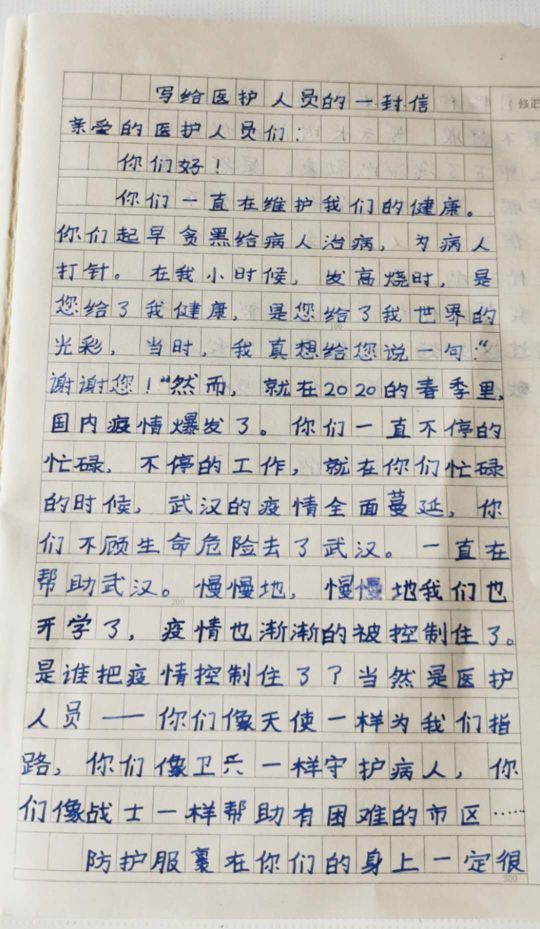 写给医护人员的一封信
亲爱的医护人员们：
你们好！
你们一直在维护我们的健康。
你们起早贪黑给病人治病，为病人
打针。在我小时候，发高烧时，是
您给了我健康，是您给了我世界的
光彩，当时，我真想给您说一句：“
谢谢您！”然而，就在2020的春季里，
国内疫情爆发了。你们一直不停的
忙碌，不停的工作，就在你们忙碌
的时候，武汉的疫情全面蔓延，你
们不顾生命危险去了武汉。一直在
帮助武汉。慢慢地，慢慢地我们也
开学了，疫情也渐渐的被控制住了。
是谁把疫情控制住了？当然是医护
人员——你们像天使一样为我们指
路，你们像卫兵一样守护病人，你
们像战士一样帮助有困难的市区……
防护服裹在你们的身上一定很